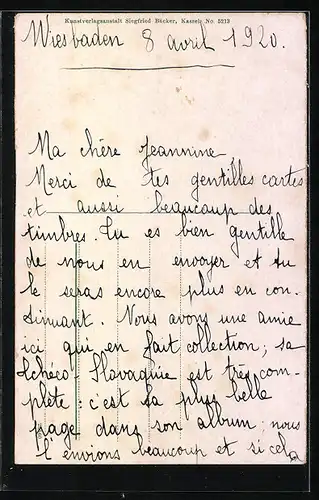 Kunstverlagsanstalt Siegfried Bücker, Kassel, No. 5213
Wiesbaden 8 avril 1920.
Ma chère Jeannine,
Merci de tes gentilles cartes
et aussi beaucoup des
timbres. Tu es bien gentille
de nous en envoyer et tu
le seras encore plus en con-
tinuant. Nous avons une amie
ici qui en fait collection; sa
Tchéco-Slovaquie est très com-
plète: c'est la plus belle
page dans son album; nous
l'envions beaucoup et si cela